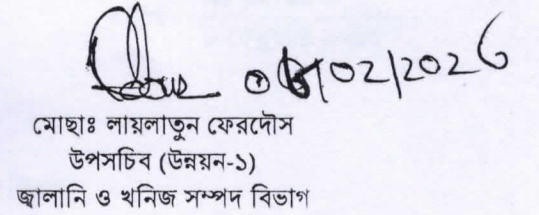 /02/2026
মোছাঃ লায়লাতুন ফেরদৌস
উপসচিব (উন্নয়ন-১)
জ্বালানি ও খনিজ সম্পদ বিভাগ